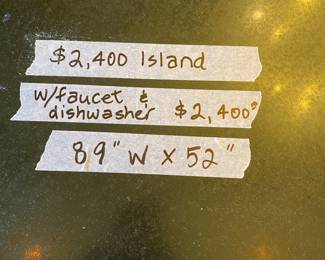 $2,400 Island
w/faucet &
dishwasher $2,400⁰
89" W x 52"